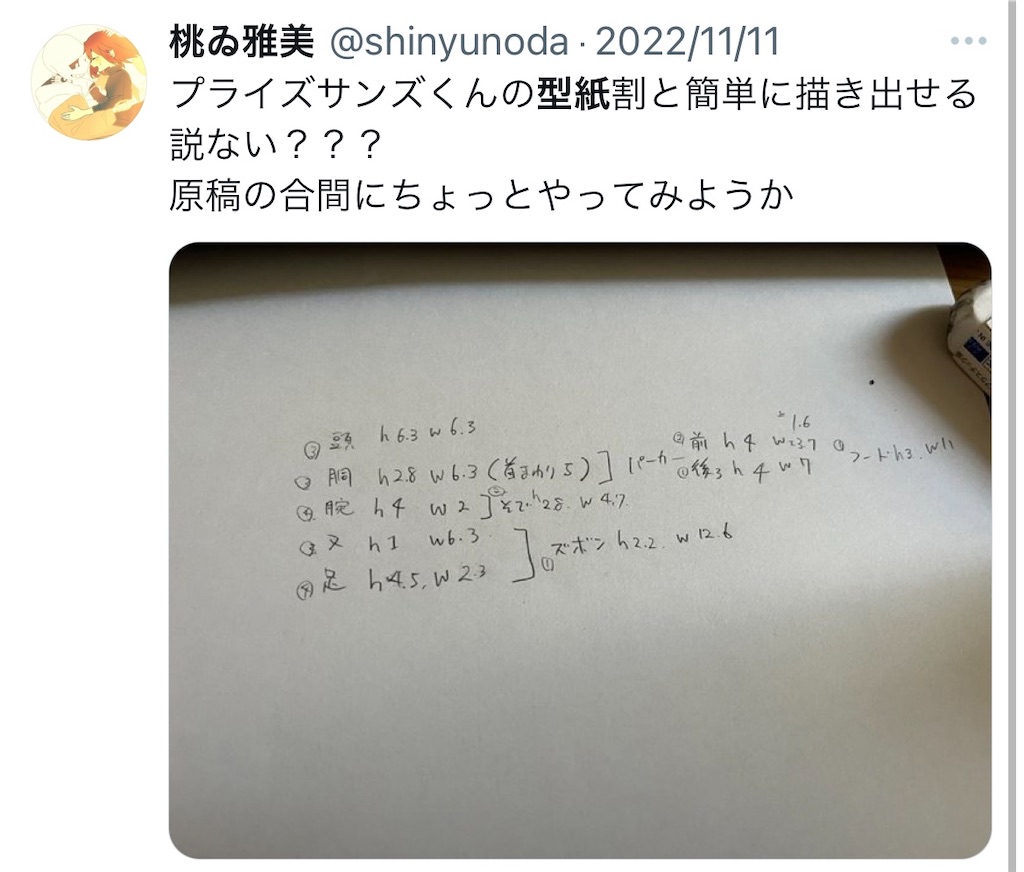 桃ゐ雅美 @shinyunoda · 2022/11/11
プライズサンズくんの型紙割と簡単に描き出せる
説ない？？？
原稿の合間にちょっとやってみようか
③ 頭 h 6.3 w 6.3
胴 h2.8 w 6.3 (首まわり 5) ] パーカー ②前 h 4 w 3.7 フード h3. w11
①後ろ h 4 w 7
④ 腕 h 4 w 2 ] そで h2.8. w 4.7.
又 h 1 w6.3
④ 足 h 4.5, w 2.3 ] ① ズボン h2.2. w 12.6